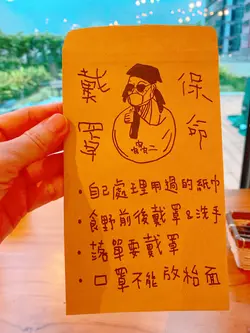 戴罩
保命
• 自己處理用過的紙巾
• 食野前後戴罩&洗手
• 落單要戴罩
• 口罩不能放枱面